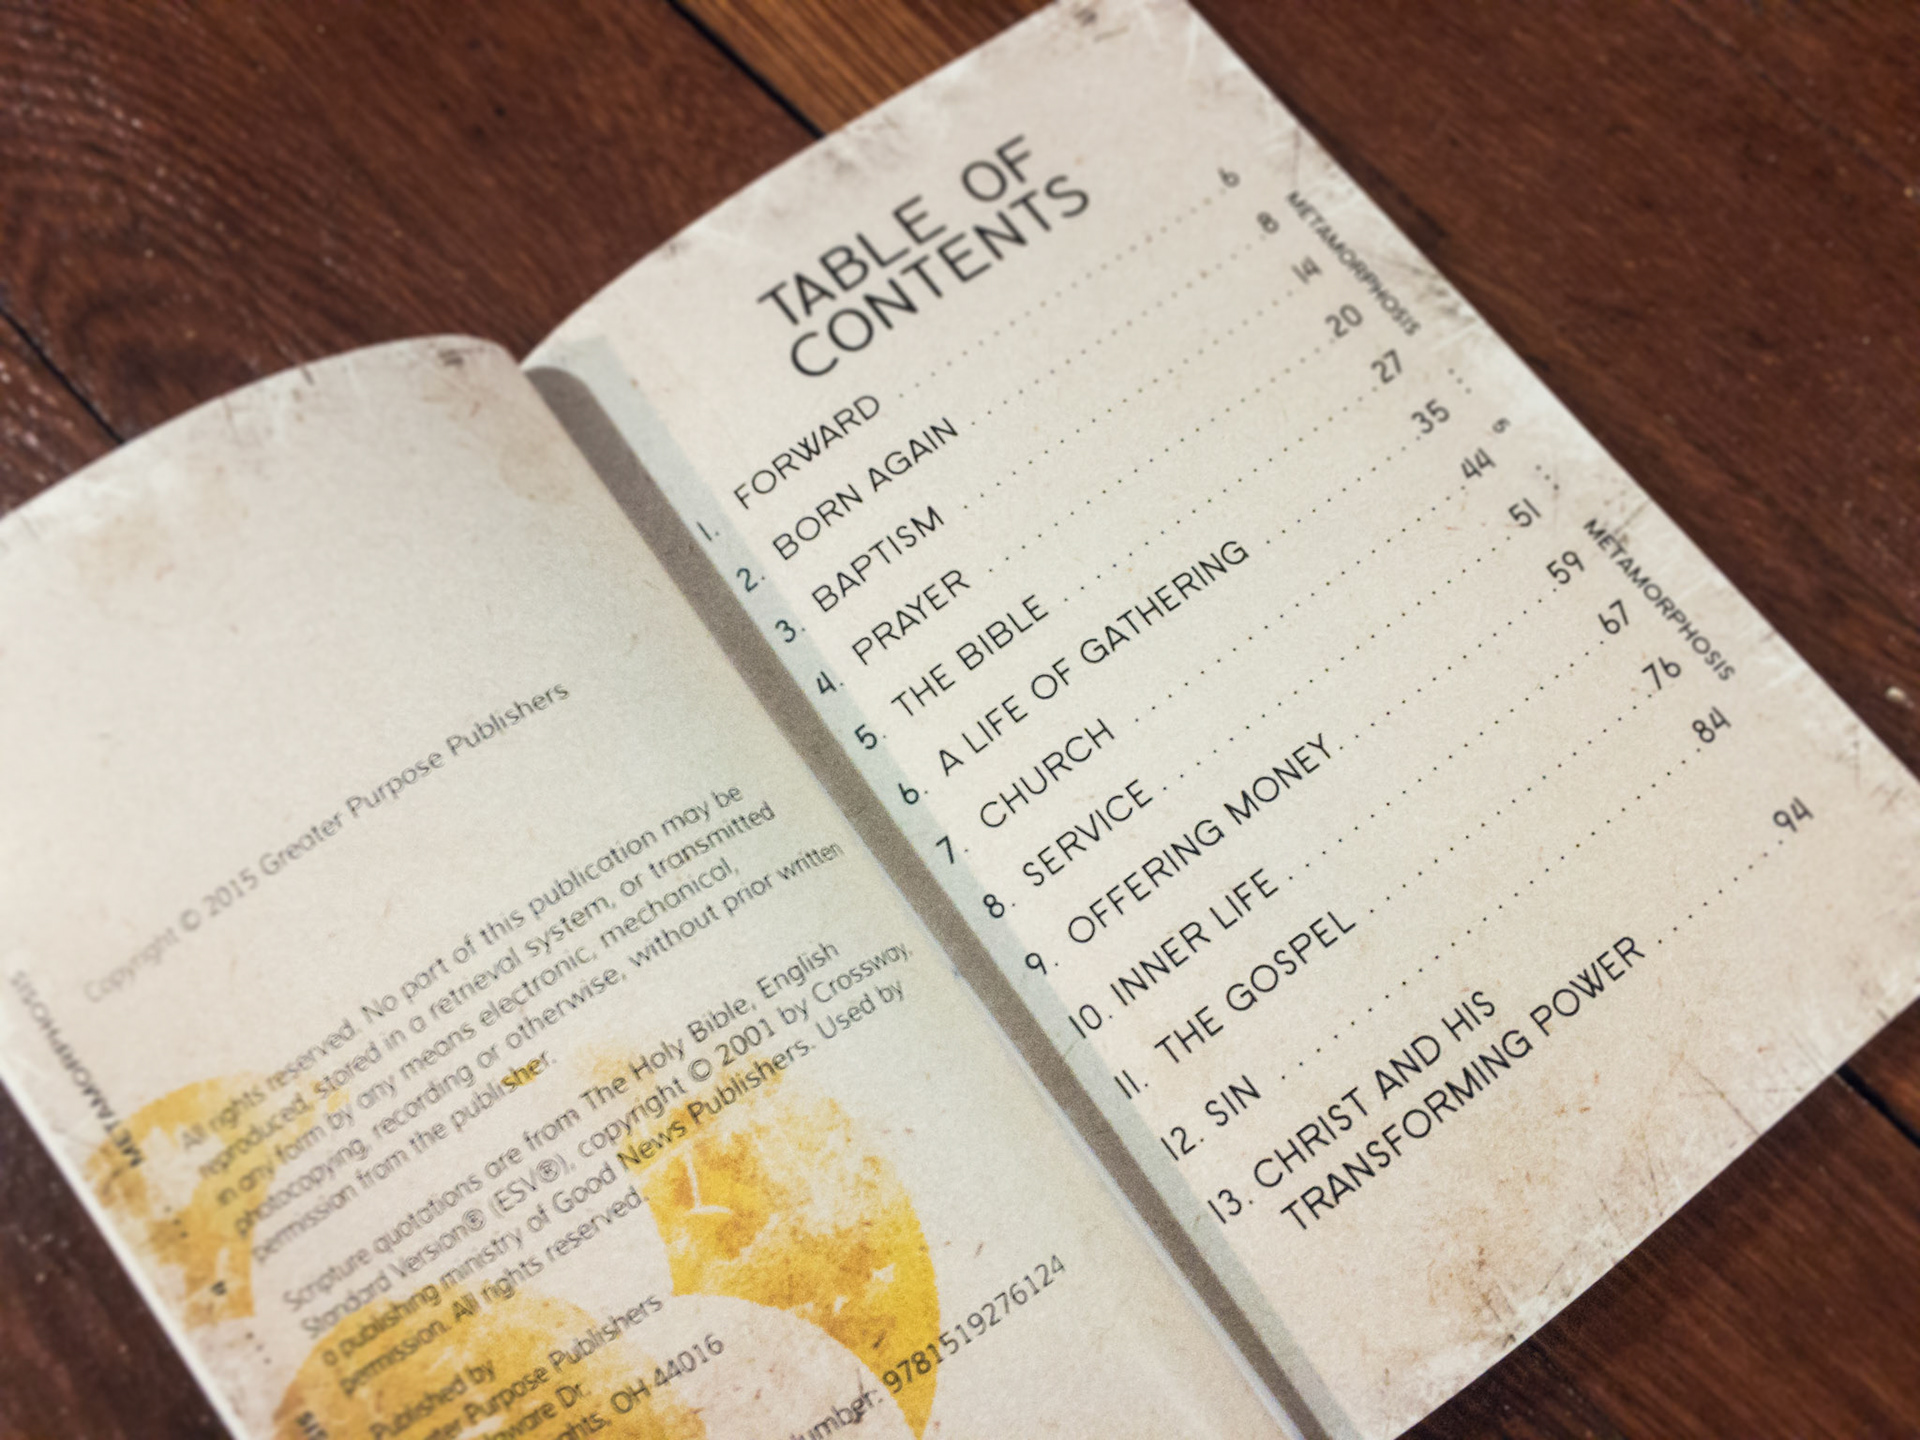 Copyright © 2015 Greater Purpose Publishers
All rights reserved. No part of this publication may be
reproduced, stored in a retrieval system, or transmitted
in any form by any means electronic, mechanical,
photocopying, recording or otherwise, without prior written
permission from the publisher.
Scripture quotations are from The Holy Bible, English
Standard Version® (ESV®), copyright © 2001 by Crossway,
a publishing ministry of Good News Publishers. Used by
permission. All rights reserved.
Published by
Purpose Publishers
Dr.
OH 44016
9781519276124
METAMORPHOSIS
4
TABLE OF
CONTENTS
1. FORWARD 6
2. BORN AGAIN 8
3. BAPTISM 14
4. PRAYER 20
5. THE BIBLE 27
6. A LIFE OF GATHERING 35
7. CHURCH 44
8. SERVICE 51
9. OFFERING MONEY 59
10. INNER LIFE 67
11. THE GOSPEL 76
12. SIN 84
13. CHRIST AND HIS
TRANSFORMING POWER 94
METAMORPHOSIS
5
METAMORPHOSIS